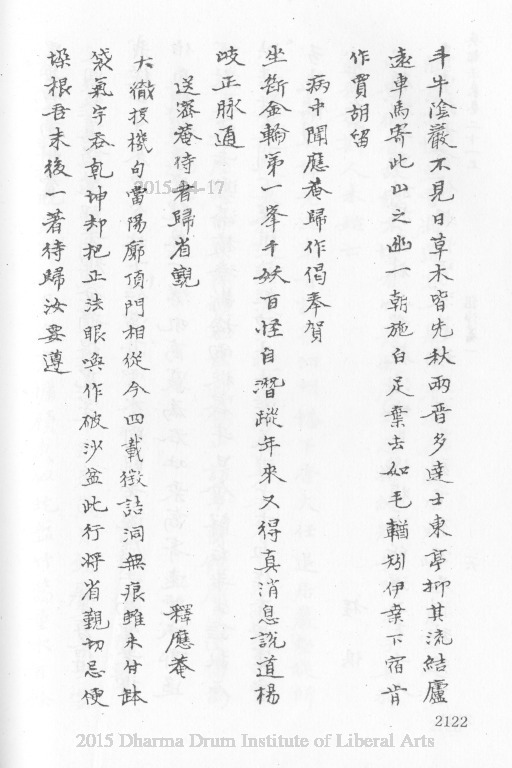 斗牛陰嚴不見日草木皆先秋兩晋多達士東亭抑其流結廬
遠車馬寄此山之幽一朝施白足棄去如毛輶矧伊桒下宿肯
作賈胡留
病中聞應菴歸作偈奉賀
坐斷金輪第一峯千妖百怪自潛蹤年來又得真消息說道楊
岐正脉通
送密菴待者歸省覲
釋應菴
大徹投機句當陽廓頂門相從今四載徵詰洞無痕雖未付鉢
袋氣宇吞乾坤却把正法眼喚作破沙盆此行將省覲切忌便
垛根吾末後一著待歸汝要遵
2122
2015-04-17
2015 Dharma Drum Institute of Liberal Arts